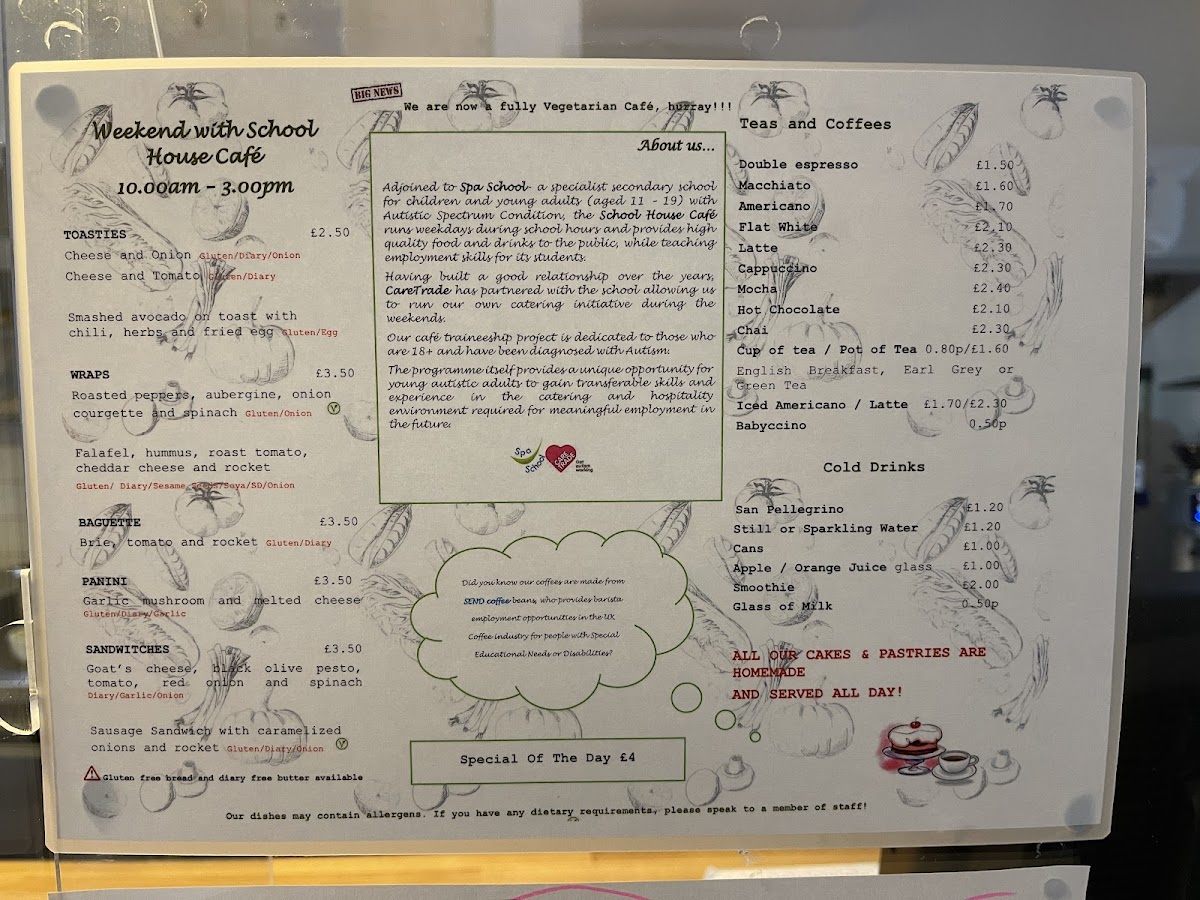 BIG NEWS
We are now a fully Vegetarian Café, hurray!!!
Weekend with School
House Café
10.00am – 3.00pm
TOASTIES £2.50
Cheese and Onion Gluten/Diary/Onion
Cheese and Tomato Gluten/Diary
Smashed avocado on toast with
chili, herbs and fried egg Gluten/Egg
WRAPS £3.50
Roasted peppers, aubergine, onion
courgette and spinach Gluten/Onion V
Falafel, hummus, roast tomato,
cheddar cheese and rocket
Gluten/ Diary/Sesame Seeds/Soya/SD/Onion
BAGUETTE £3.50
Brie, tomato and rocket Gluten/Diary
PANINI £3.50
Garlic mushroom and melted cheese
Gluten/Diary/Garlic
SANDWITCHES £3.50
Goat's cheese, black olive pesto,
tomato, red onion and spinach
Diary/Garlic/Onion
Sausage Sandwich with caramelized
onions and rocket Gluten/Diary/Onion V
Gluten free bread and diary free butter available
About us...
Adjoined to Spa School- a specialist secondary school
for children and young adults (aged 11 – 19) with
Autistic Spectrum Condition, the School House Café
runs weekdays during school hours and provides high
quality food and drinks to the public, while teaching
employment skills for its students.
Having built a good relationship over the years,
CareTrade has partnered with the school allowing us
to run our own catering initiative during the
weekends.
Our café traineeship project is dedicated to those who
are 18+ and have been diagnosed with Autism.
The programme itself provides a unique opportunity for
young autistic adults to gain transferable skills and
experience in the catering and hospitality
environment required for meaningful employment in
the future.
Spa
School
CARE
TRADE
Get
autism
working
Did you know our coffees are made from
SEND coffee beans, who provides barista
employment opportunities in the UK
Coffee industry for people with Special
Educational Needs or Disabilities?
Special Of The Day £4
Teas and Coffees
Double espresso £1.50
Macchiato £1.60
Americano £1.70
Flat White £2.10
Latte £2.30
Cappuccino £2.30
Mocha £2.40
Hot Chocolate £2.10
Chai £2.30
Cup of tea / Pot of Tea 0.80p/£1.60
English Breakfast, Earl Grey or
Green Tea
Iced Americano / Latte £1.70/£2.30
Babyccino 0.50p
Cold Drinks
San Pellegrino £1.20
Still or Sparkling Water £1.20
Cans £1.00
Apple / Orange Juice glass £1.00
Smoothie £2.00
Glass of Milk 0.50p
ALL OUR CAKES & PASTRIES ARE
HOMEMADE
AND SERVED ALL DAY!
Our dishes may contain allergens. If you have any dietary requirements, please speak to a member of staff!